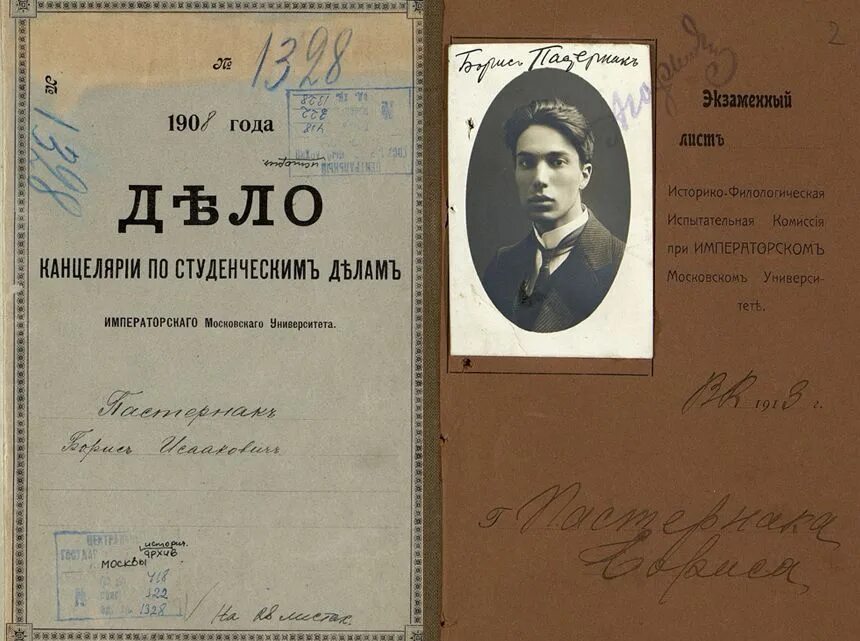 № 1328
№ 1328
1908 года
история.
ДѢЛО
КАНЦЕЛЯРІИ ПО СТУДЕНЧЕСКИМЪ ДѢЛАМЪ
ИМПЕРАТОРСКАГО Московскаго Университета.
Пастернакъ
Борисъ Исааковичъ
история.
архив
МОСКВЫ
418
322
1328
На 28 листах.
Борисъ Пастернакъ
2
Экзаменный
листъ
Историко-Филологическая
Испытательная Комиссія
при ИМПЕРАТОРСКОМЪ
Московскомъ Универси-
тетѣ.
1913 г.
г Пастернака
Бориса